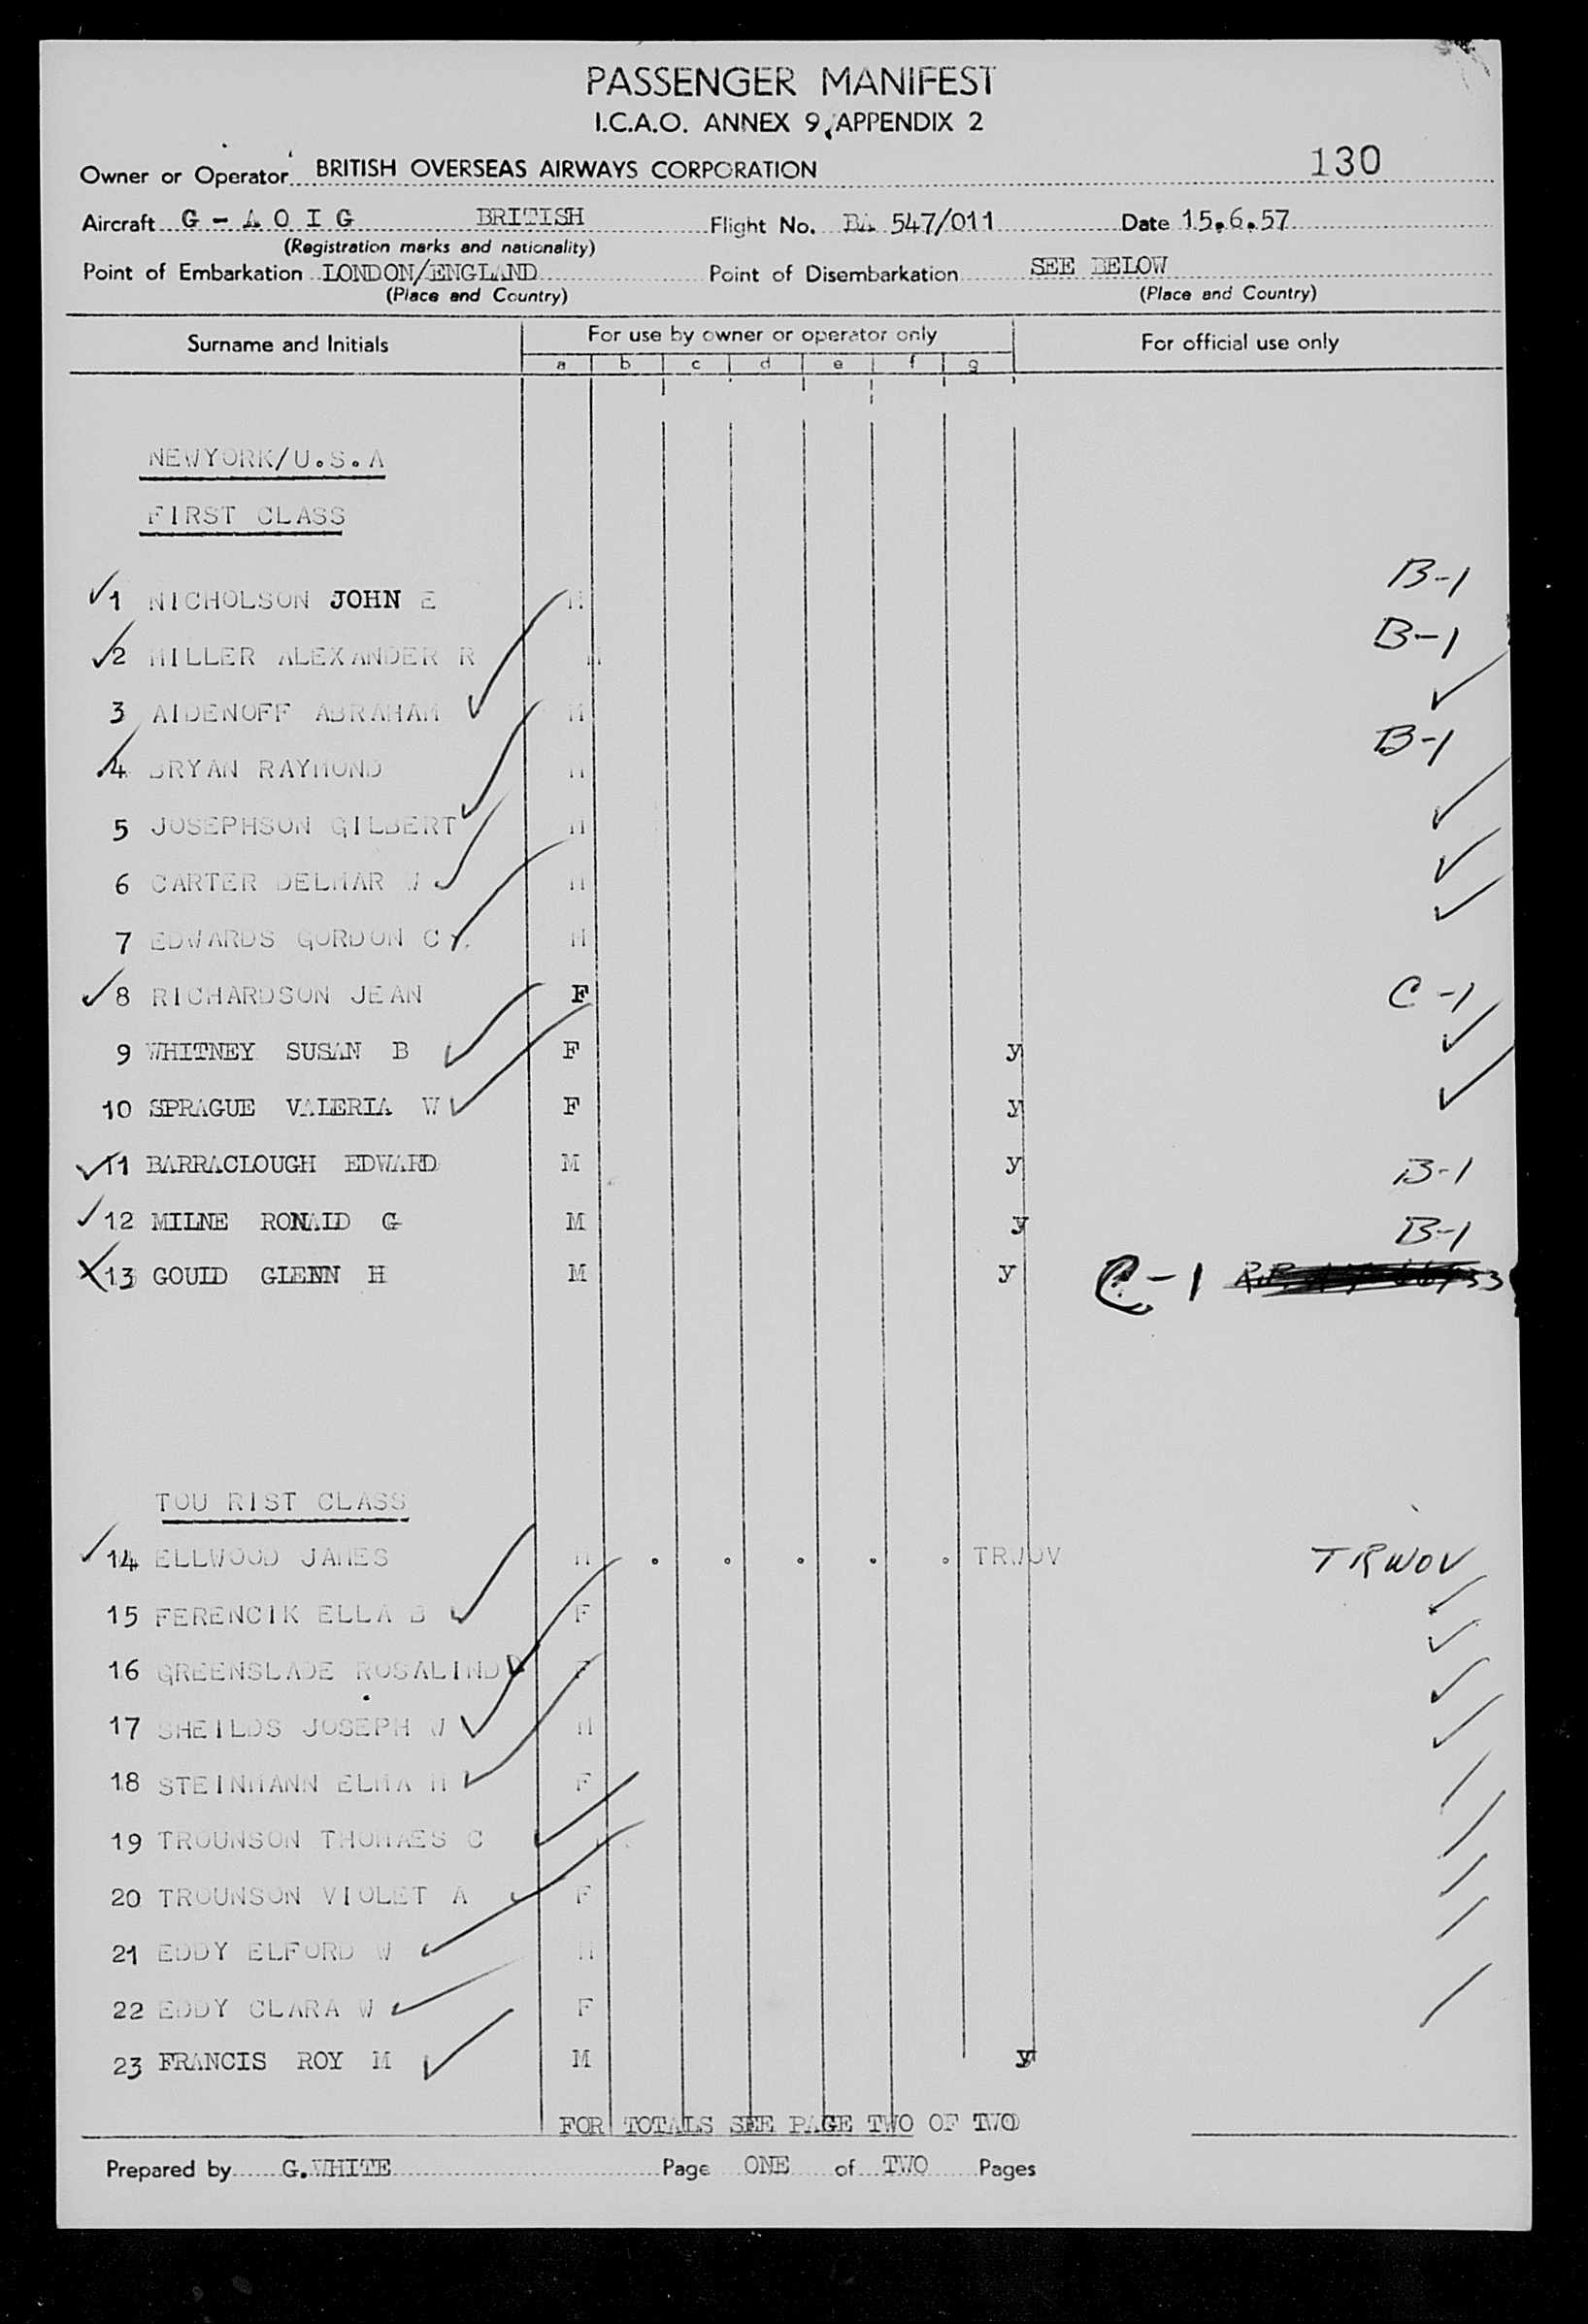 PASSENGER MANIFEST
I.C.A.O. ANNEX 9, APPENDIX 2
Owner or Operator BRITISH OVERSEAS AIRWAYS CORPORATION 130
Aircraft G - A O I G BRITISH Flight No. BA 547/011 Date 15.6.57
(Registration marks and nationality)
Point of Embarkation LONDON/ENGLAND Point of Disembarkation SEE BELOW
(Place and Country) (Place and Country)
Surname and Initials For use by owner or operator only For official use only
a b c d e f g
NEWYORK/U.S.A
FIRST CLASS
1 NICHOLSON JOHN E M B-1
2 MILLER ALEXANDER R M B-1
3 AIDENOFF ABRAHAM M
4 BRYAN RAYMOND M B-1
5 JOSEPHSON GILBERT M
6 CARTER DELMAR W M
7 EDWARDS GORDON C M
8 RICHARDSON JEAN F C-1
9 WHITNEY SUSAN B F y
10 SPRAGUE VALERIA W F y
11 BARRACLOUGH EDWARD M y B-1
12 MILNE RONALD G M y B-1
13 GOULD GLENN H M y C-1
TOU RIST CLASS
14 ELLWOOD JAMES M . . . . . TRWOV TRWOV
15 FERENCIK ELLA B F
16 GREENSLADE ROSALIND D F
17 SHEILDS JOSEPH W M
18 STEINMANN ELMA M F
19 TROUNSON THOMAES C M
20 TROUNSON VIOLET A F
21 EDDY ELFORD W M
22 EDDY CLARA W F
23 FRANCIS ROY M M y
FOR TOTALS SEE PAGE TWO OF TWO
Prepared by G.WHITE Page ONE of TWO Pages